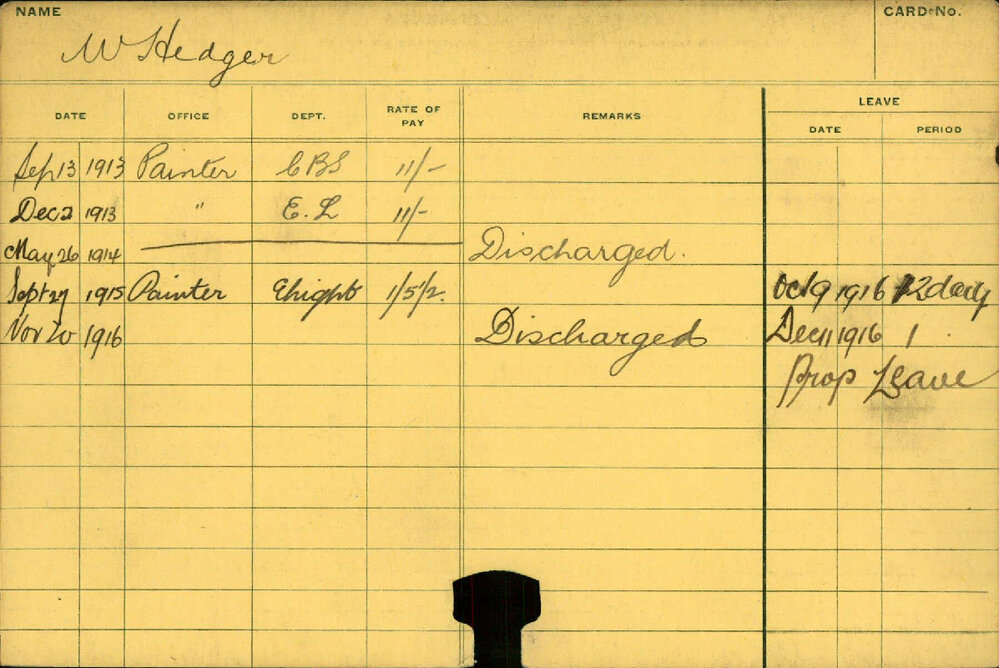 NAME CARD No.
W Hedger
LEAVE
DATE OFFICE DEPT. RATE OF PAY REMARKS DATE PERIOD
Sep 13 1913 Painter CBS 11/-
Dec 2 1913 " E. L 11/-
May 26 1914 Discharged.
Sept 27 1915 Painter 1/5/2. Oct 9 1916 12 days
Nov 20 1916 Discharged Dec 11 1916 1
Prop Leave